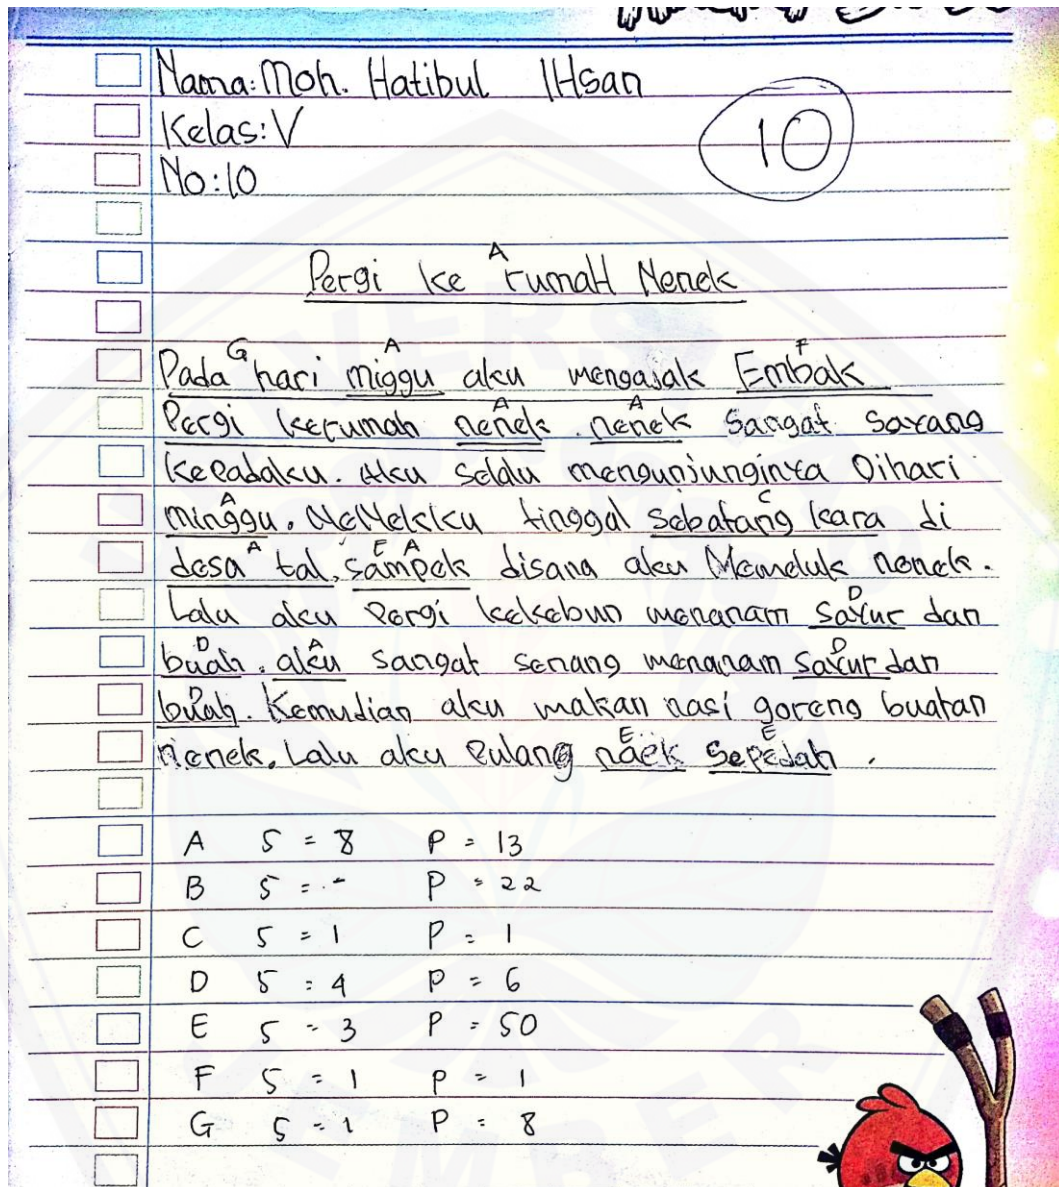 Nama: Moh. Hatibul IHsan
Kelas: V
No: 10
10
A
Pergi ke rumaH Nenek
G A F
Pada hari miggu aku mengajak Embak
A A
Pergi kerumah nenek. nenek sangat sayang
kepadaku. Aku selalu mengunjunginya Dihari
A C
minggu. NeNekku tinggal sebatang kara di
A E A
desa tal, sampek disana aku Memeluk nenek.
D
Lalu aku Pergi kekebun menanam sayur dan
D A D
buah. aku sangat senang menanam sayur dan
D
buah. Kemudian aku makan nasi goreng buatan
E E
nenek. Lalu aku Pulang naek Sepedah.
A S = 8 P = 13
B S = - P = 22
C S = 1 P = 1
D S = 4 P = 6
E S = 3 P = 50
F S = 1 P = 1
G S = 1 P = 8